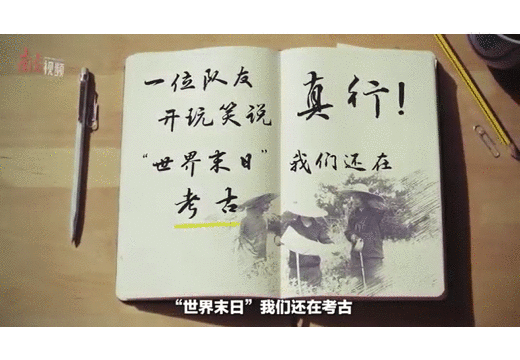 视频
一位队友
开玩笑说
“世界末日”
考古
真行!
我们还在
“世界末日”我们还在考古